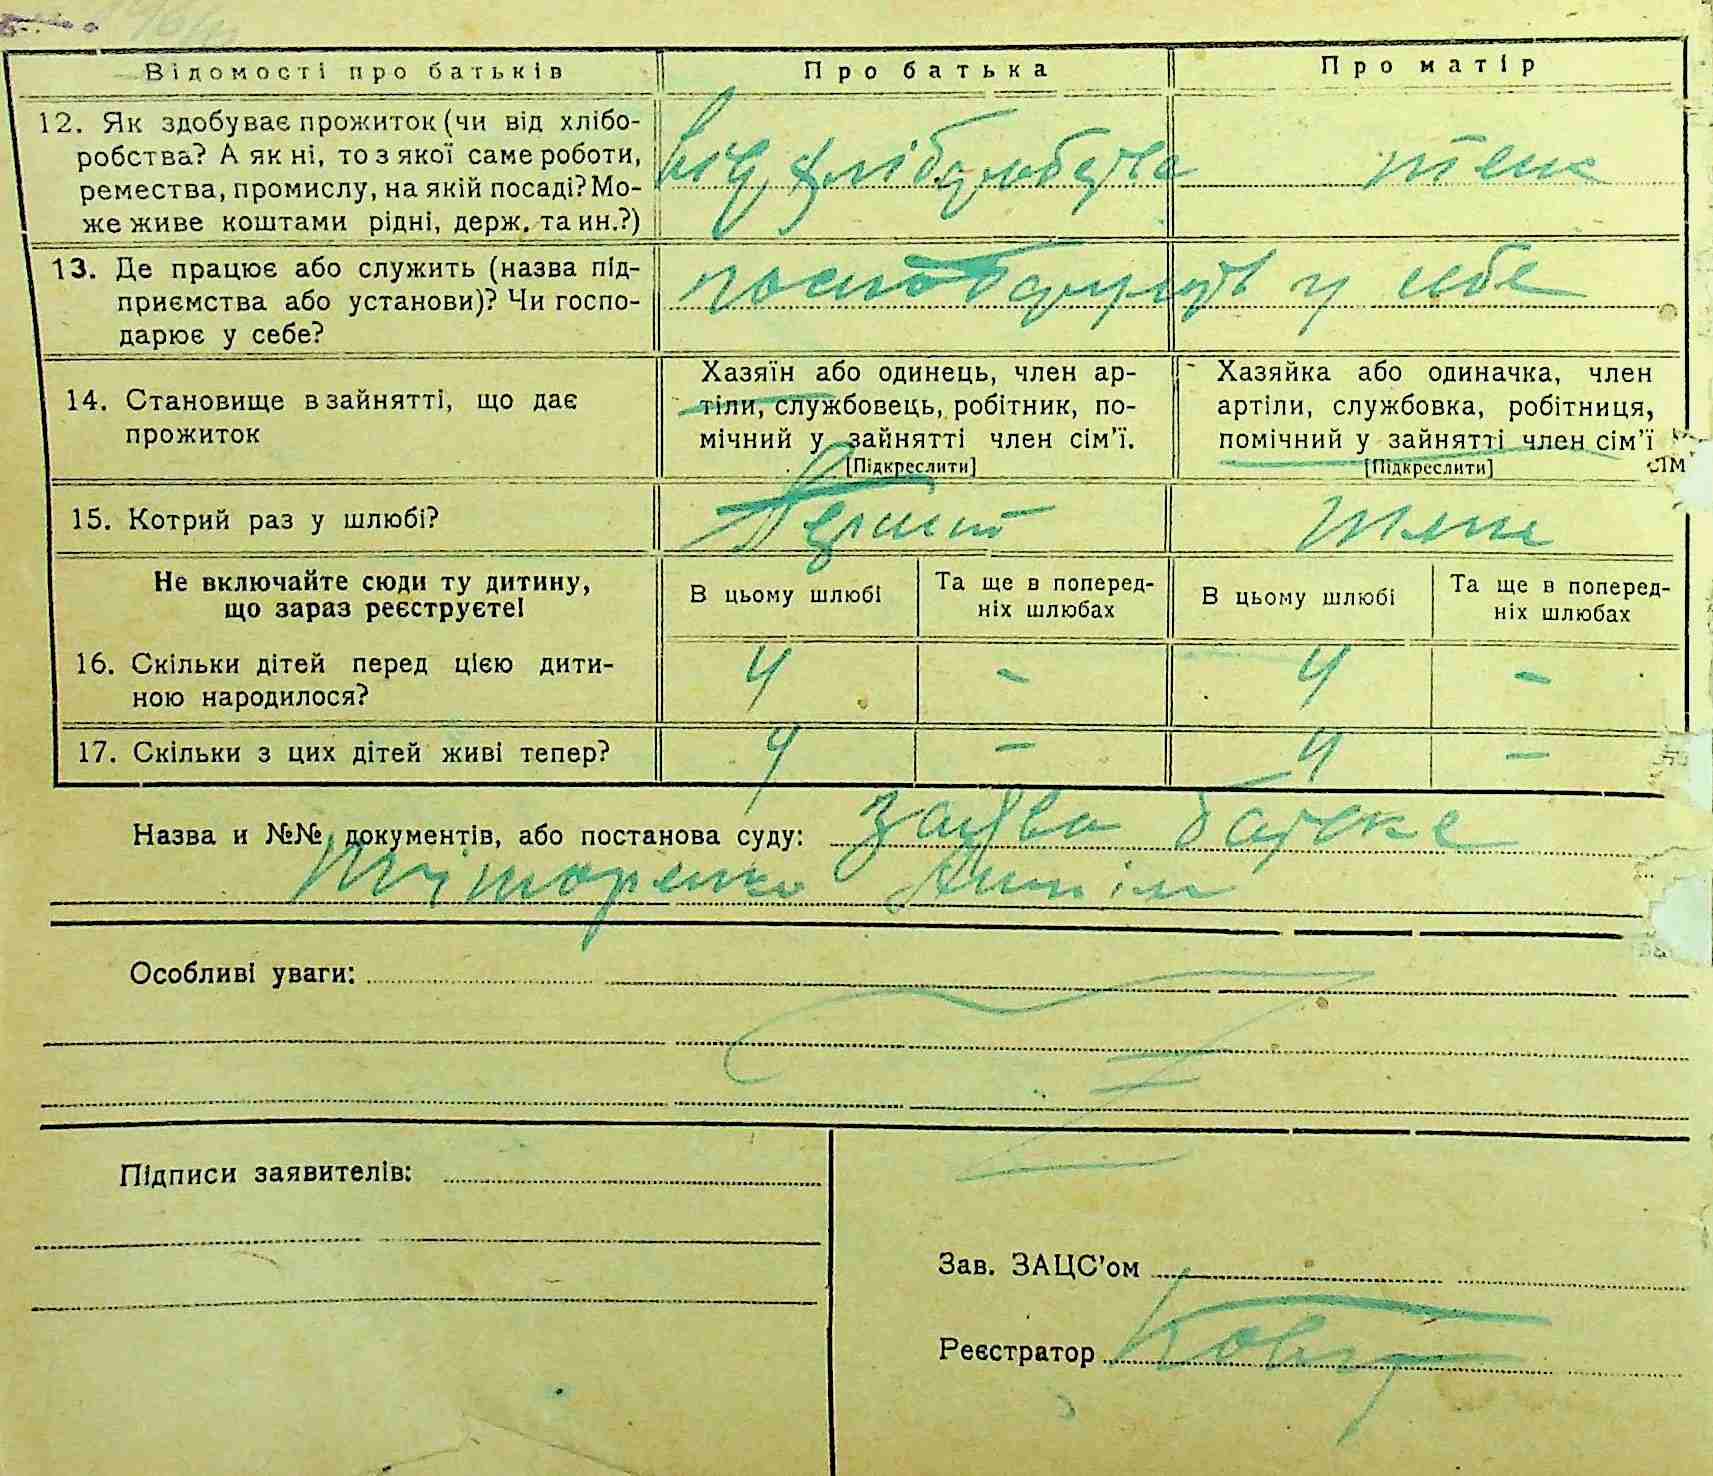 Відомості про батьків Про батька Про матір
12. Як здобуває прожиток (чи від хлібо-
робства? А як ні, то з якої саме роботи,
ремества, промислу, на якій посаді? Мо-
же живе коштами рідні, держ. та ин.?)
від хліборобства теж
13. Де працює або служить (назва під-
приємства або установи)? Чи госпо-
дарює у себе?
у себе
14. Становище в зайнятті, що дає
прожиток
Хазяїн або одинець, член ар-
тіли, службовець, робітник, по-
мічний у зайнятті член сім'ї.
[Підкреслити]
Хазяйка або одиначка, член
артіли, службовка, робітниця,
помічний у зайнятті член сім'ї
[Підкреслити]
15. Котрий раз у шлюбі?
Не включайте сюди ту дитину,
що зараз реєструєте!
В цьому шлюбі
Та ще в поперед-
ніх шлюбах
В цьому шлюбі
Та ще в поперед-
ніх шлюбах
16. Скільки дітей перед цією дити-
ною народилося?
4 - 4 -
17. Скільки з цих дітей живі тепер?
4 - 4 -
Назва и №№ документів, або постанова суду: заява батька
Особливі уваги:
Підписи заявителів:
Зав. ЗАЦС'ом
Реєстратор